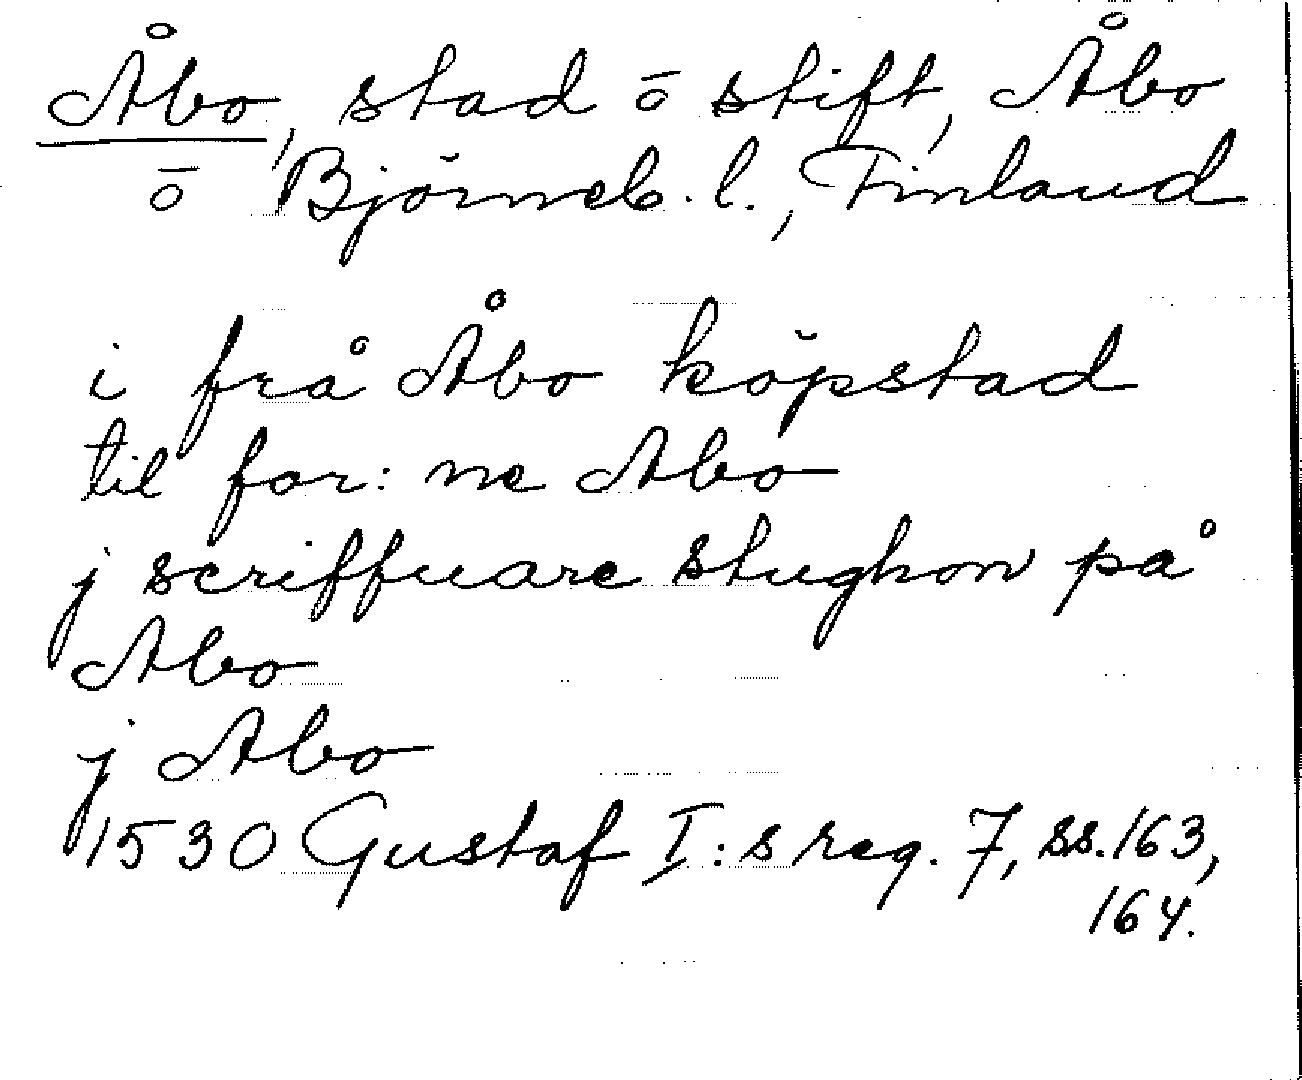 Åbo, stad ō stift, Åbo
ō Björneb. l., Finland
i frå Åbo köpstad
til for: ne Abo
j scriffuare stughon på
Abo
j Abo
1530 Gustaf I:s reg. 7, ss. 163,
164.